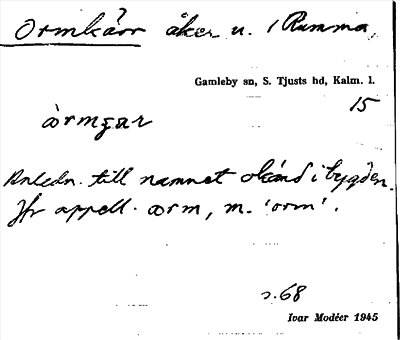 Ormkärr åker u. / Ramma,
Gamleby sn, S. Tjusts hd, Kalm. l.
15
ærmʒar
Anledn. till namnet okänd i bygden.
Jfr appell. ærm, m. 'orm'.
s. 68
Ivar Modéer 1945